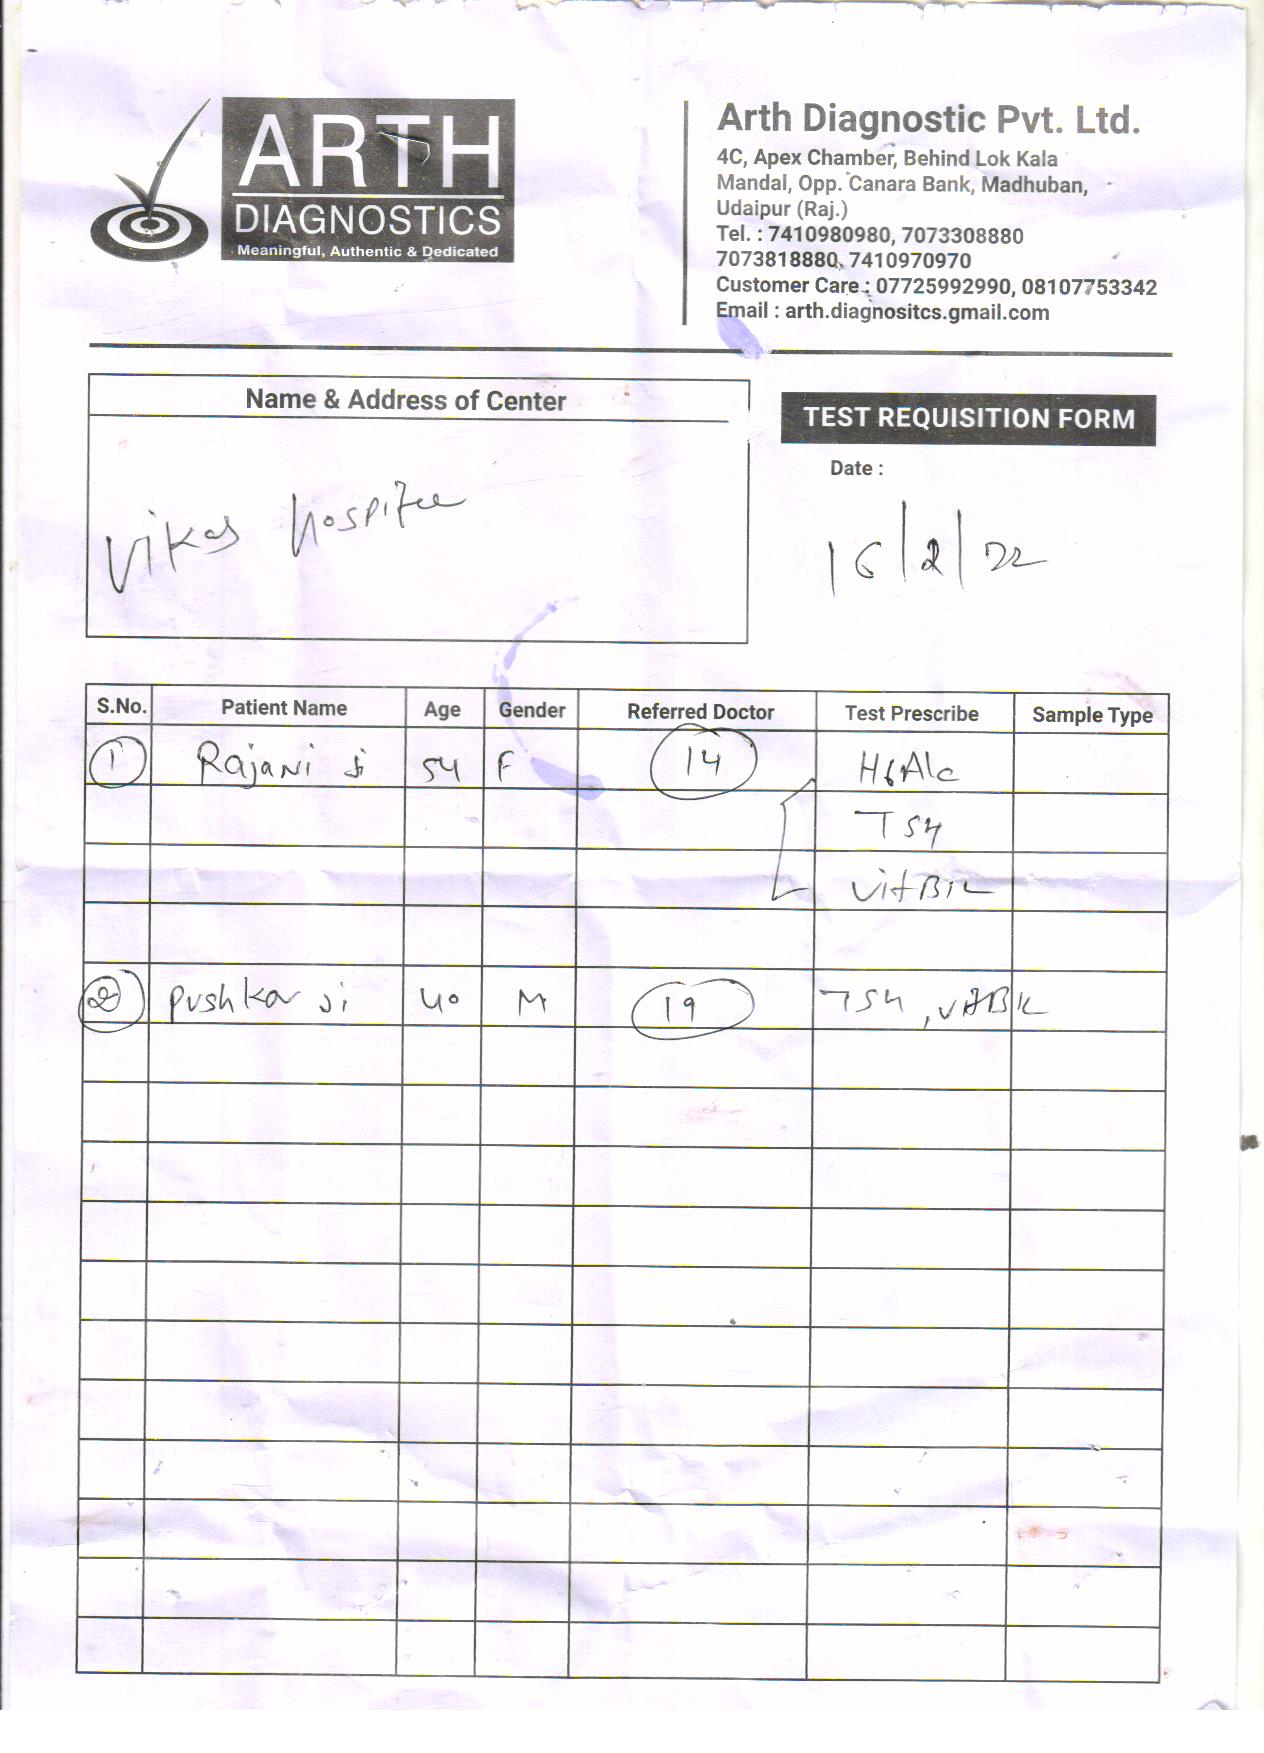 ARTH
DIAGNOSTICS
Meaningful, Authentic & Dedicated
Arth Diagnostic Pvt. Ltd.
4C, Apex Chamber, Behind Lok Kala
Mandal, Opp. Canara Bank, Madhuban,
Udaipur (Raj.)
Tel. : 7410980980, 7073308880
7073818880, 7410970970
Customer Care : 07725992990, 08107753342
Email : arth.diagnositcs.gmail.com
Name & Address of Center
Vikas hospital
TEST REQUISITION FORM
Date :
16/2/22
S.No. Patient Name Age Gender Referred Doctor Test Prescribe Sample Type
1 Rajani ji 54 F 14 HbA1c
TSH
Vit B12
2 Pushkar Ji 40 M 19 TSH, Vit B12